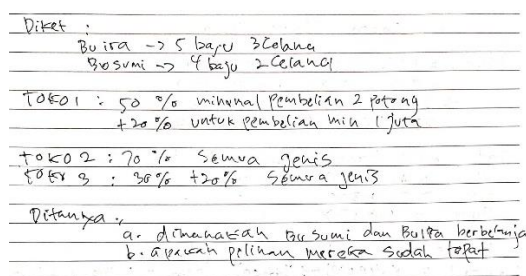 Diket :
Bu ira -> 5 baju 3 Celana
Bu sumi -> 4 baju 2 Celana
TOKO 1 : 50 % minimal Pembelian 2 potong
+20 % untuk pembelian min 1 juta
toko 2 : 70 % Semua jenis
toko 3 : 30% +20% Semua jenis
Ditanya :
a. dimanakah Bu Sumi dan Bu Ira berbelanja
b. apakah pilihan mereka sudah tepat